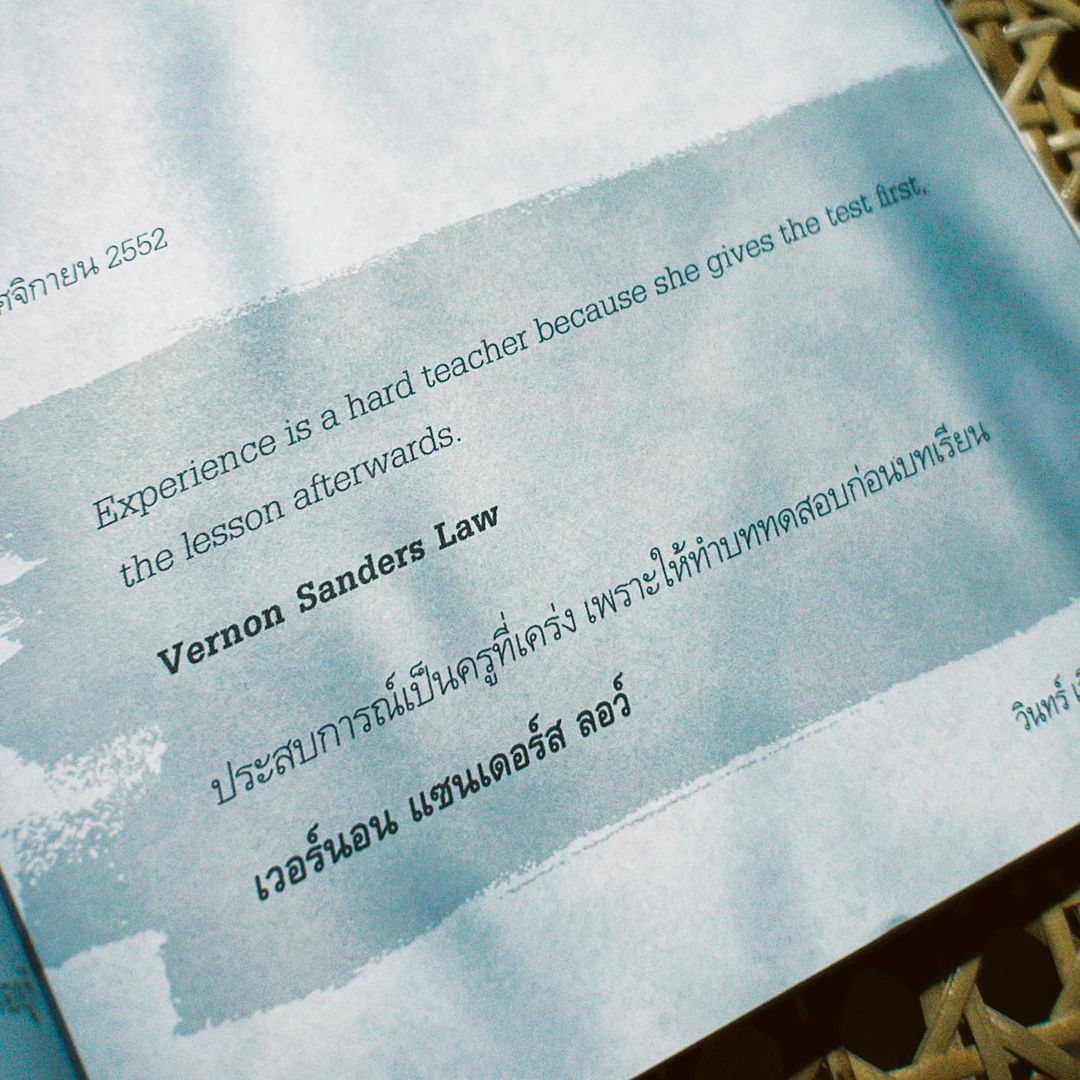 2552
Experience is a hard teacher because she gives the test first,
the lesson afterwards.
Vernon Sanders Law
ประสบการณ์เป็นครูที่เคร่ง เพราะให้ทำบททดสอบก่อนบทเรียน
เวอร์นอน แซนเดอร์ส ลอว์
วินทร์